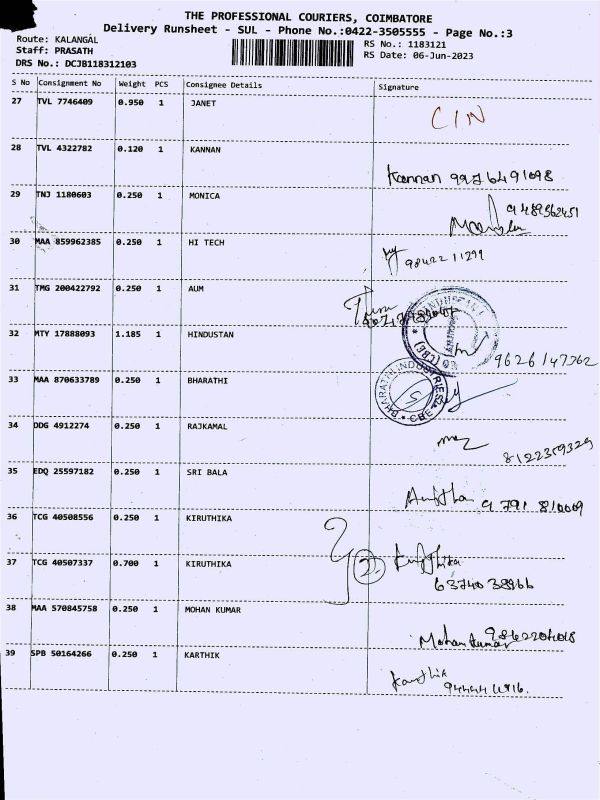 THE PROFESSIONAL COURIERS, COIMBATORE
Delivery Runsheet - SUL - Phone No.:0422-3505555 - Page No.:3
Route: KALANGAL
RS No.: 1183121
Staff: PRASATH
RS Date: 06-Jun-2023
DRS No.: DCJB118312103
S No Consignment No Weight PCS Consignee Details Signature
27 TVL 7746409 0.950 1 JANET CIN
28 TVL 4322782 0.120 1 KANNAN
Kannan 9976491098
29 TNJ 1180603 0.250 1 MONICA
9489562451
30 MAA 859962385 0.250 1 HI TECH
98422 11299
31 TMG 200422792 0.250 1 AUM
32 MTY 17888093 1.185 1 HINDUSTAN
9626147362
33 MAA 870633789 0.250 1 BHARATHI
BHARATHI INDUSTRIES * CBE *
34 DDG 4912274 0.250 1 RAJKAMAL
8122359329
35 EDQ 25597182 0.250 1 SRI BALA
9791 810009
36 TCG 40508556 0.250 1 KIRUTHIKA
37 TCG 40507337 0.700 1 KIRUTHIKA
2 Kiruthika
6374038966
38 MAA 570845758 0.250 1 MOHAN KUMAR
Mohan Kumar 9862204018
39 SPB 50164266 0.250 1 KARTHIK
Karthik